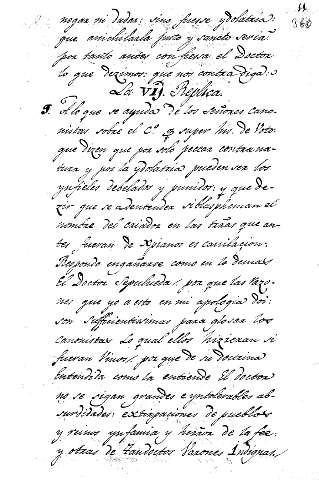 11
360
negar ni dudar: sino fuesse ydolatria:
que anichilarla justo y sancto seria:
por tanto antes confiessa el Doctor
lo que dezimos: que nos contradiga:
La VIJ. Replica.
A lo que se ayuda de los Señores cano-
nistas sobre el C.º q super his. de Voto.
que dizen que por solo peccar contra na-
tura y por la ydolatria pueden ser los
ynfieles debelados y punidos: y que de-
zir que se a de entender si blaspheman el
nombre del criador en las tierras que an-
tes fueran de Xpianos es cavilacion:
Respondo engañarse como en lo demas
El Doctor Sepulveda/ por que las razo-
nes que yo a esto en mi apologia doi:
son suffiçientissimas para glosar los
canonistas Lo qual ellos hizieran si
fueran vivos/ por que de su doctrina
Entendida como la entiende El doctor
no se sigan grandes e yntolerables ab-
surdidades: extirpaciones de pueblos
y reinos ynfamia y horror de la fee:
y otras de tandoctos Varones Indignas/